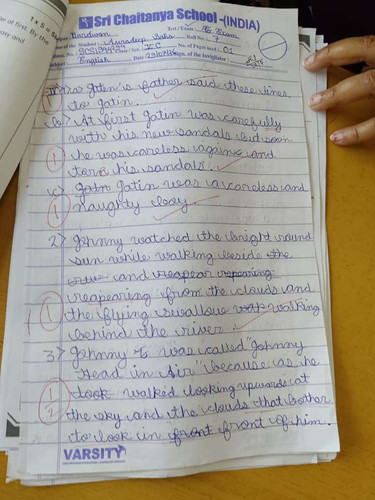 1 x 5 = 5
of first. By the
easy and
Sri Chaitanya School-(INDIA)
Burdwan
Name of the Student: Auradeep Saha Roll No.: 7
Class / Sec.: IC No. of Pages used: 01
Subject: English Date
Sign. of the Invigilator:
Jatin's father said these lines
to Jatin.
b) At first Jatin was carefully
with his new sandals but soon
he was careless again and
torn his sandals.
c) Jatin Jatin was a careless and
naughty boy.
2) Johnny watched the bright round
sun while walking beside the
and reapear repearing
reapearing from the clouds and
the flying swallow walking
behind the river.
3) Johnny was called "Johnny
Head in Air" because as he
took walked looking upwards at
the sky and the clouds that bother
to look in front front of him.
1
1
1
1
1/2
VARSITY